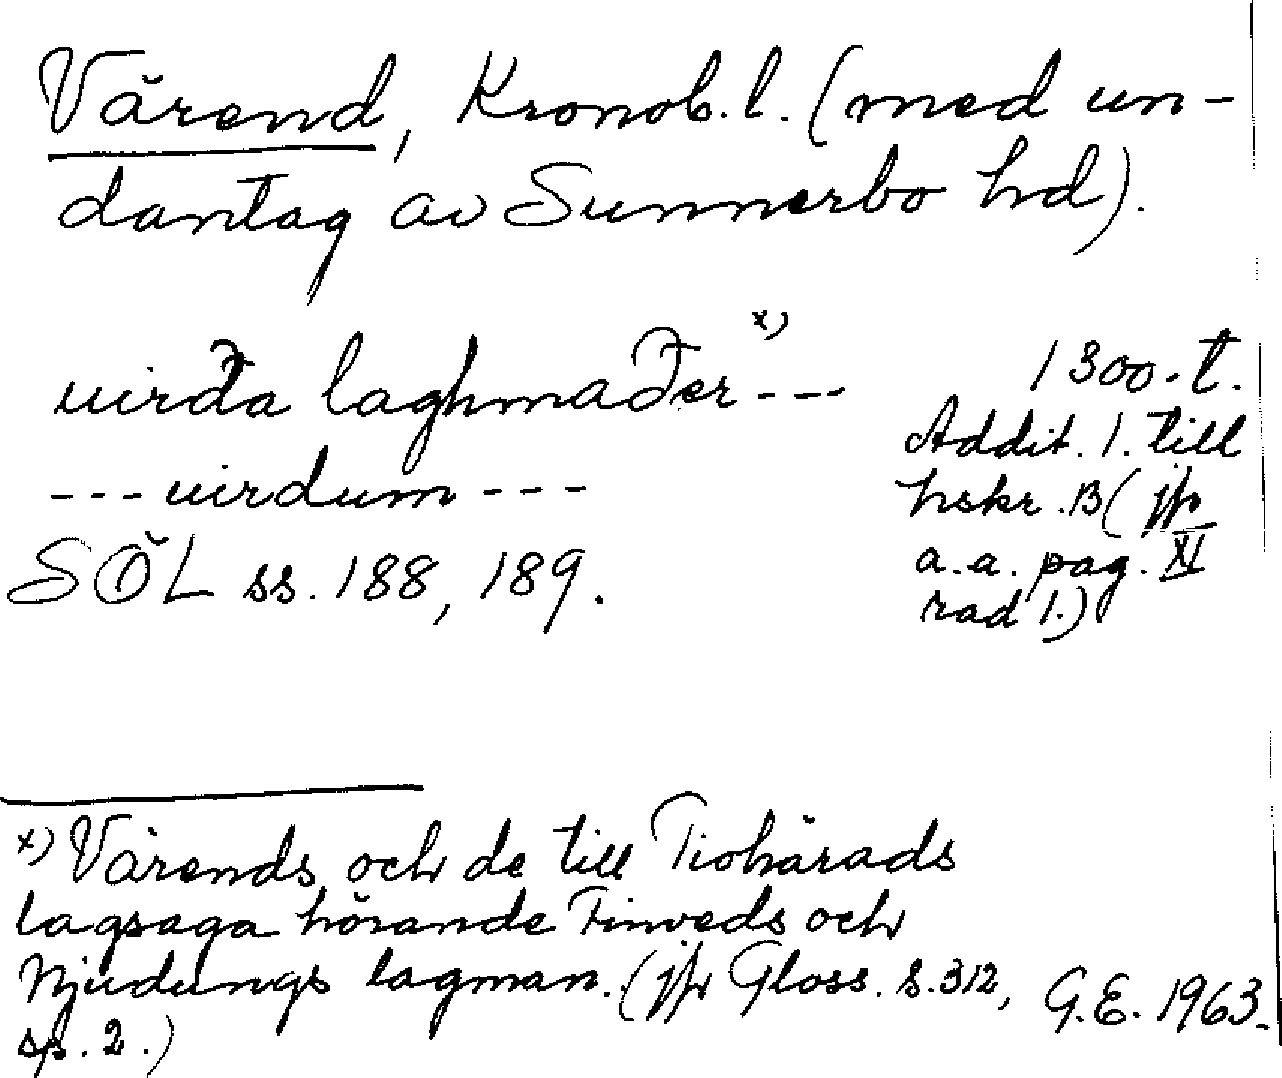 Värend, Kronob. l. (med un-
dantag av Sunnerbo hd).
uirđa laghmaðer x) ---
--- uirdum ---
SÖL ss. 188, 189.
1300-t.
Addit. 1. till
hskr. B (jfr
a.a. pag. XI
rad 1.)
x) Värends och de till Tiohärads
lagsaga hörande Finveds och
Njudungs lagman. (jfr Gloss. s. 312,
sp. 2.)
G.E. 1963.